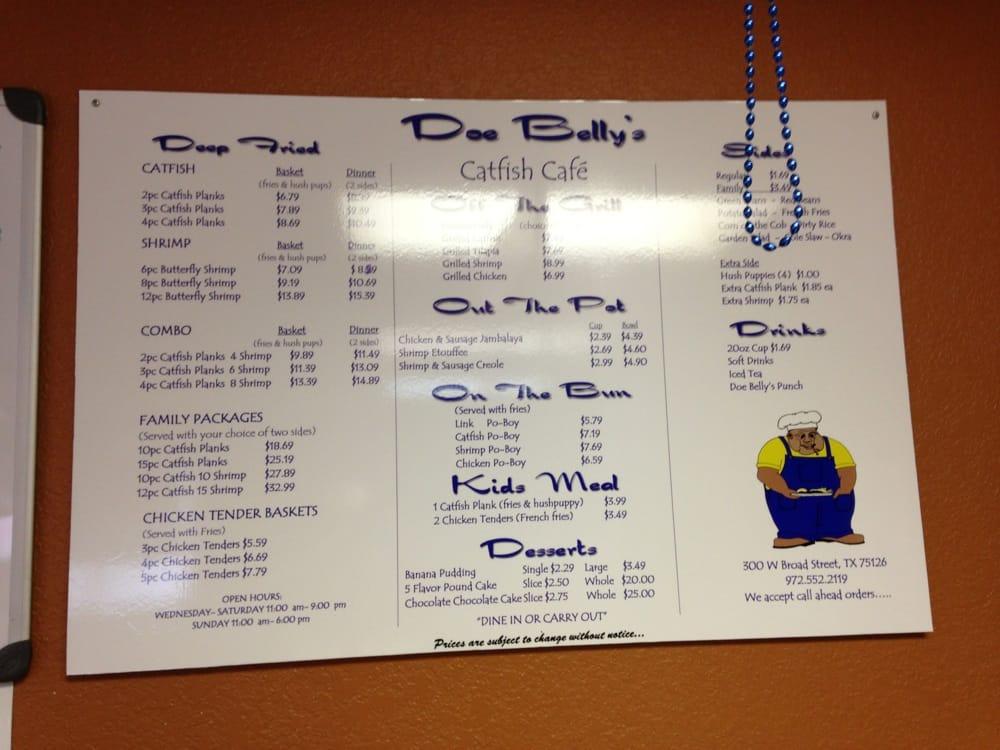 Doe Belly's
Catfish Café
Deep Fried
CATFISH Basket Dinner
(fries & hush pups) (2 sides)
2pc Catfish Planks $6.79
3pc Catfish Planks $7.89 $9.59
4pc Catfish Planks $8.69 $10.49
SHRIMP Basket Dinner
(fries & hush pups) (2 sides)
6pc Butterfly Shrimp $7.09
8pc Butterfly Shrimp $9.19 $10.69
12pc Butterfly Shrimp $13.89 $15.39
COMBO Basket Dinner
(fries & hush pups) (2 sides)
2pc Catfish Planks 4 Shrimp $9.89 $11.49
3pc Catfish Planks 6 Shrimp $11.39 $13.09
4pc Catfish Planks 8 Shrimp $13.39 $14.89
FAMILY PACKAGES
(Served with your choice of two sides)
10pc Catfish Planks $18.69
15pc Catfish Planks $25.19
10pc Catfish 10 Shrimp $27.89
12pc Catfish 15 Shrimp $32.99
CHICKEN TENDER BASKETS
(Served with Fries)
3pc Chicken Tenders $5.59
4pc Chicken Tenders $6.69
5pc Chicken Tenders $7.79
OPEN HOURS:
WEDNESDAY- SATURDAY 11:00 am- 9:00 pm
SUNDAY 11:00 am- 6:00 pm
Off The Grill
Grilled Tilapia $7.69
Grilled Shrimp $8.99
Grilled Chicken $6.99
Out The Pot
Cup Bowl
Chicken & Sausage Jambalaya $2.39 $4.39
Shrimp Etouffee $2.69 $4.60
Shrimp & Sausage Creole $2.99 $4.90
On The Bun
(Served with fries)
Link Po-Boy $5.79
Catfish Po-Boy $7.19
Shrimp Po-Boy $7.69
Chicken Po-Boy $6.59
Kids Meal
1 Catfish Plank (fries & hushpuppy) $3.99
2 Chicken Tenders (French fries) $3.49
Desserts
Banana Pudding Single $2.29 Large $3.49
5 Flavor Pound Cake Slice $2.50 Whole $20.00
Chocolate Chocolate Cake Slice $2.75 Whole $25.00
"DINE IN OR CARRY OUT"
Prices are subject to change without notice...
Sides
Regular $1.69
Family $3.49
Green Beans - Red Beans
Potato Salad - French Fries
Corn on the Cob - Dirty Rice
Garden Salad - Cole Slaw - Okra
Extra Side
Hush Puppies (4) $1.00
Extra Catfish Plank $1.85 ea
Extra Shrimp $1.75 ea
Drinks
20oz Cup $1.69
Soft Drinks
Iced Tea
Doe Belly's Punch
300 W Broad Street, TX 75126
972.552.2119
We accept call ahead orders.....